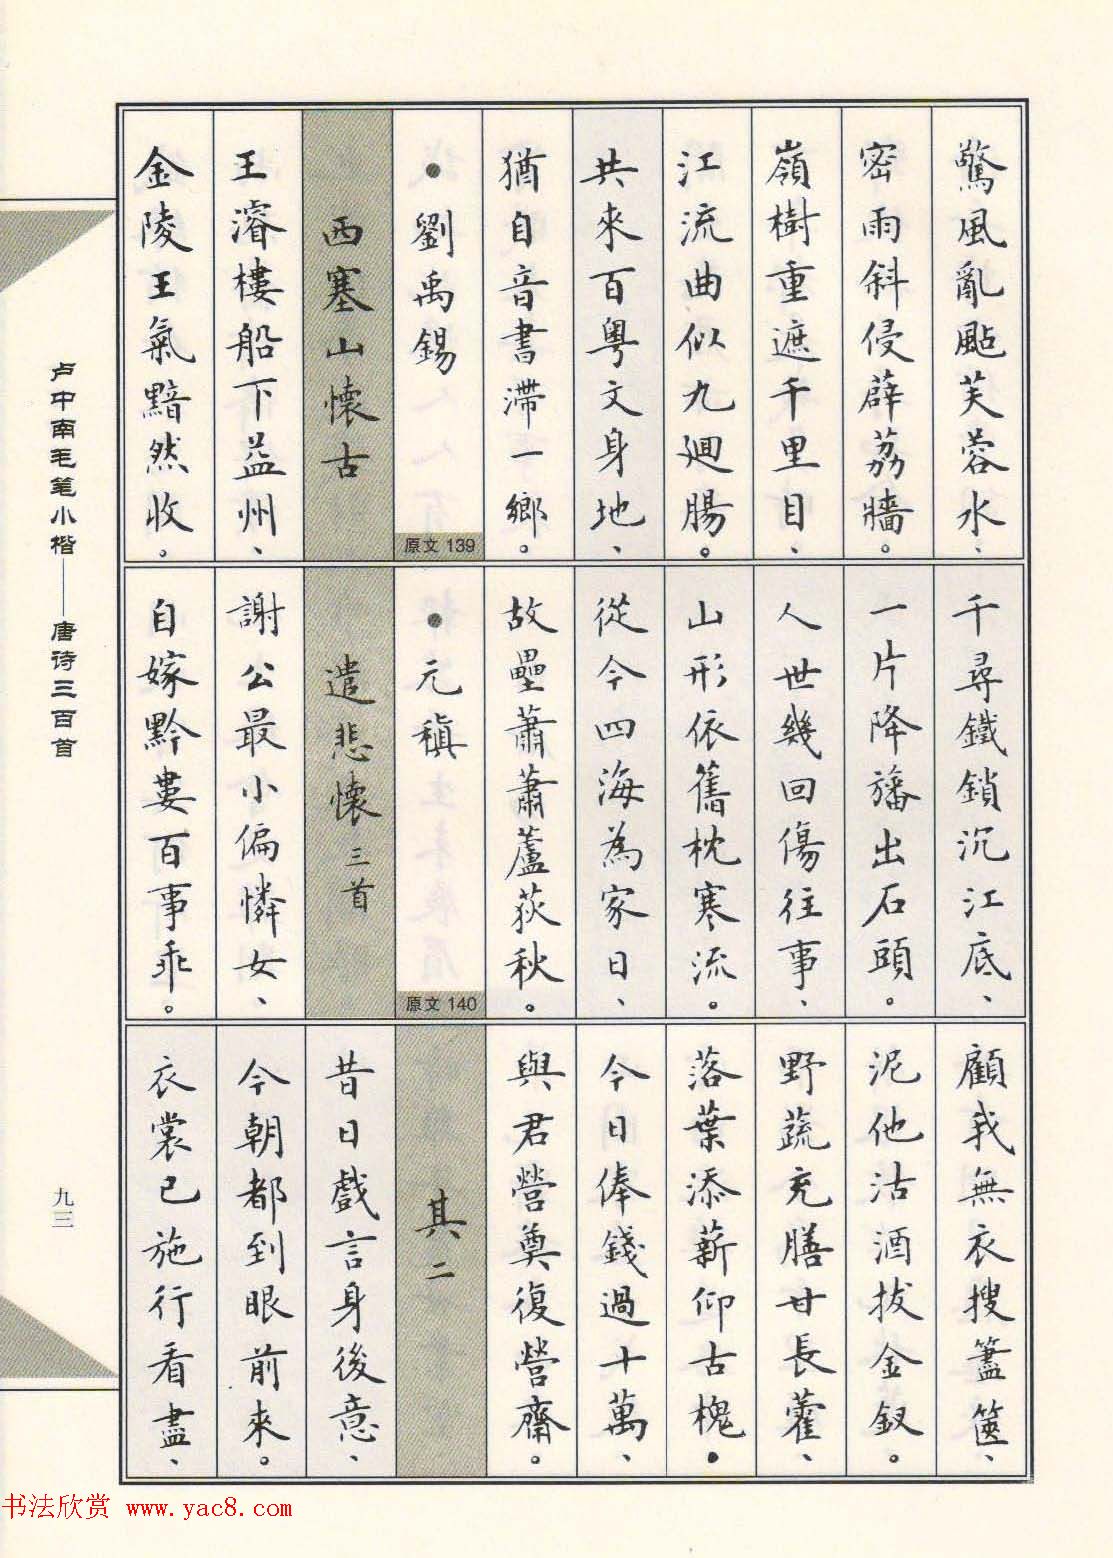 驚風亂颭芙蓉水、
密雨斜侵薜荔牆。
嶺樹重遮千里目、
江流曲似九迴腸。
共來百粵文身地、
猶自音書滯一鄉。
·劉禹錫
原文 139
西塞山懷古
王濬樓船下益州、
金陵王氣黯然收。
千尋鐵鎖沉江底、
一片降旛出石頭。
人世幾回傷往事、
山形依舊枕寒流。
從今四海為家日、
故壘蕭蕭蘆荻秋。
·元稹
原文 140
遣悲懷三首
謝公最小偏憐女、
自嫁黔婁百事乖。
顧我無衣搜藎篋、
泥他沽酒拔金釵。
野蔬充膳甘長藿、
落葉添薪仰古槐。
今日俸錢過十萬、
與君營奠復營齋。
其二
昔日戲言身後意、
今朝都到眼前來。
衣裳已施行看盡、
卢中南毛笔小楷——唐诗三百首
九三
书法欣赏 www.yac8.com